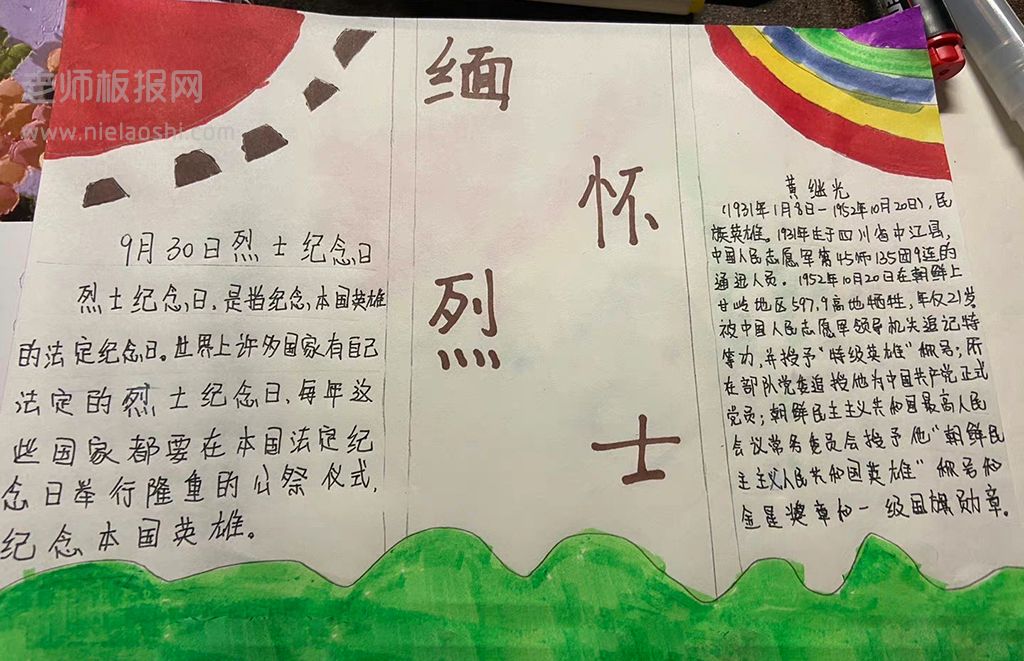 老师板报网
www.nielaoshi.com
缅
怀
烈
士
9月30日烈士纪念日
烈士纪念日,是指纪念本国英雄
的法定纪念日。世界上许多国家有自己
法定的烈士纪念日,每年这
些国家都要在本国法定纪
念日举行隆重的公祭仪式,
纪念本国英雄。
黄继光
(1931年1月8日-1952年10月20日),民
族英雄。1931年生于四川省中江县,
中国人民志愿军第45师135团9连的
通迅人员。1952年10月20日在朝鲜上
甘岭地区597.9高地牺牲,年仅21岁。
被中国人民志愿军领导机关追记特
等功,并授予"特级英雄"称号;所
在部队党委追授他为中国共产党正式
党员;朝鲜民主主义共和国最高人民
会议常务委员会授予他"朝鲜民
主主义人民共和国英雄"称号和
金星奖章和一级国旗勋章。